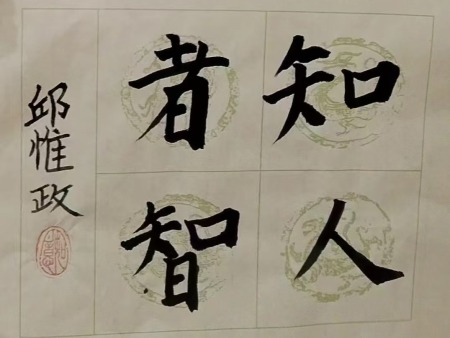 知人
者智
邱惟政